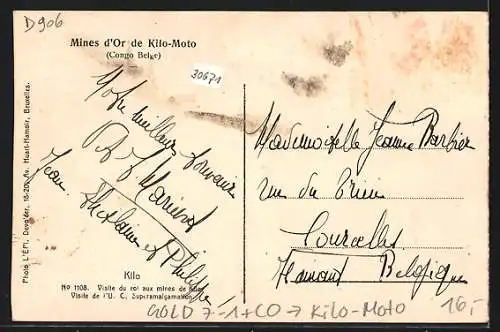 D906
Mines d'Or de Kilo-Moto
(Congo Belge)
30671
Votre meilleur souvenir
Jean
Ghislaine et Philippe
Mademoiselle Jeanne Barbier
rue du
Courcelles
Hainaut Belgique
Photo L'EPI, Devogder, 18-20, Av. Haut-Manoir, Bruxelles.
Kilo
No 1108. Visite du roi aux mines de Kilo.
Visite de l'U. C. Supramalgamation.
GOLD 7-1+CO → Kilo-Moto
16,-